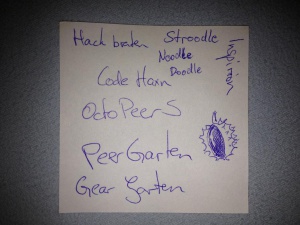 Hack braten
Stroodle
Noodle
Doodle
Code Haxn
OctoPeerS
PeerGarten
Gear Garten